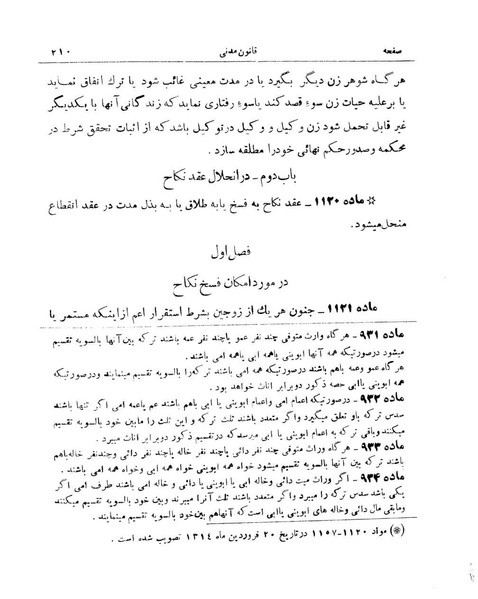 صفحه قانون مدنی ۲۱۰
هرگاه شوهر زن دیگر بگیرد یا در مدت معینی غائب شود یا ترك انفاق نماید
یا برعلیه حیات زن سوء قصد کند یاسوء رفتاری نماید که زندگانی آنها با یکدیگر
غیر قابل تحمل شود زن وکیل و وکیل درتوکیل باشد که از اثبات تحقق شرط در
محکمه وصدورحکم نهائی خودرا مطلقه سازد .
باب دوم ـ در انحلال عقد نکاح
* ماده ۱۱۲۰ ـ عقد نکاح به فسخ یابه طلاق یا به بذل مدت در عقد انقطاع
منحل میشود.
فصل اول
در مورد امکان فسخ نکاح
ماده ۱۱۲۱ ـ جنون هر یك از زوجین بشرط استقرار اعم از اینکه مستمر یا
ماده ۹۳۱ ـ هرگاه وارث متوفی چند نفر عمو یاچند نفر عمه باشند ترکه بین آنها بالسویه تقسیم
میشود درصورتیکه همه آنها ابوینی یاهمه ابی یاهمه امی باشند .
هرگاه عمو وعمه باهم باشند درصورتیکه همه امی باشند ترکه‌را بالسویه تقسیم مینمایند ودرصورتیکه
همه ابوینی یاابی حصه ذکور دوبرابر اناث خواهد بود .
ماده ۹۳۲ ـ درصورتیکه اعمام امی واعمام ابوینی یا ابی باهم باشند عم یاعمه امی اگر تنها باشند
سدس ترکه باو تعلق میگیرد واگر متعدد باشند ثلث ترکه و این ثلث را مابین خود بالسویه تقسیم
میکنند وباقی ترکه به اعمام ابوینی یا ابی میرسدکه درتقسیم ذکور دوبرابر اناث میبرد .
ماده ۹۳۳ ـ هرگاه وراث متوفی چند نفر دائی یا چند نفر خاله یاچند نفر دائی وچندنفر خاله باهم
باشند ترکه بین آنها بالسویه تقسیم میشود خواه همه ابوینی خواه همه ابی وخواه همه امی باشند .
ماده ۹۳۴ ـ اگر وراث میت دائی وخاله ابی یا ابوینی با دائی و خاله امی باشند طرف امی اگر
یکی باشد سدس ترکه را میبرد واگر متعدد باشند ثلث آنرا میبرند وبین خود بالسویه تقسیم میکنند
ومابقی مال دائی وخاله های ابوینی یاابی است که آنهاهم بین خود بالسویه تقسیم مینمایند .
(*) مواد ۱۱۲۰-۱۱۵۷ درتاریخ ۲۰ فروردین ماه ۱۳۱۴ تصویب شده است .